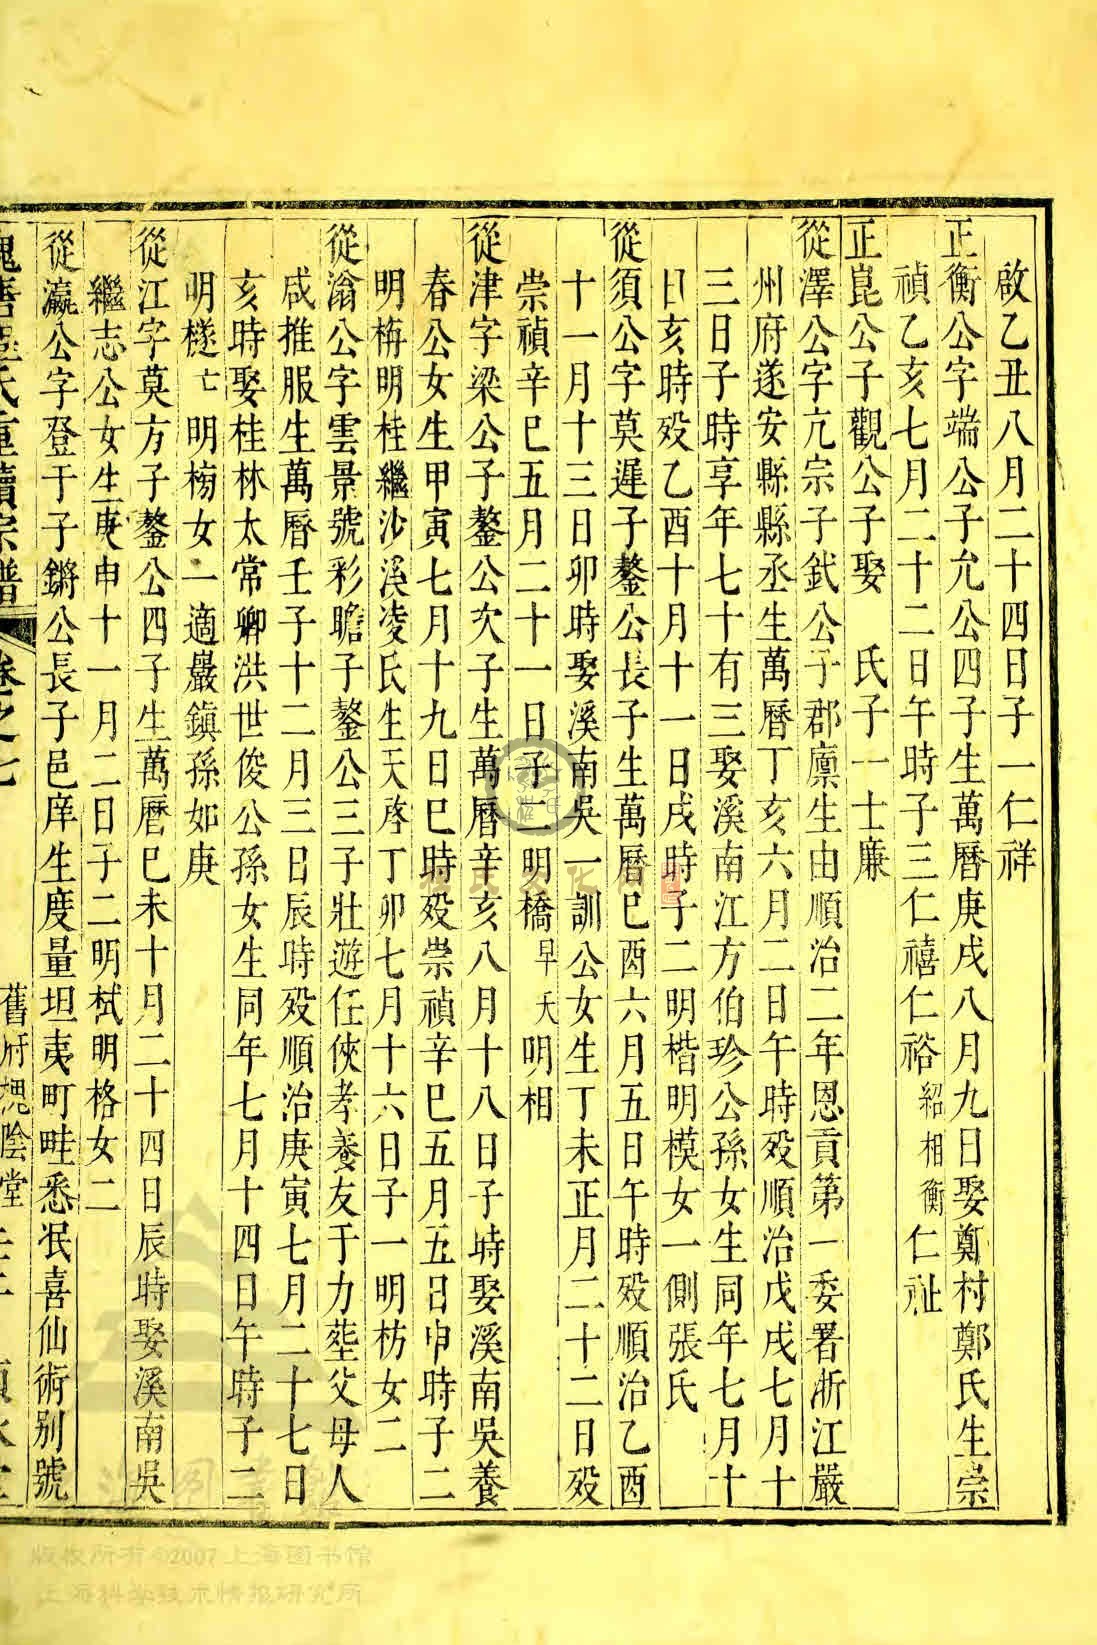 啟乙丑八月二十四日子一仁祥
正衡公字端公子允公四子生萬曆庚戌八月九日娶鄭村鄭氏生崇
禎乙亥七月二十二日午時子三仁禧仁裕紹相衡仁祉
正崑公子觀公子娶 氏子一士廉
從澤公字亢宗子鈛公子郡廩生由順治二年恩貢第一委署浙江嚴
州府遂安縣縣丞生萬曆丁亥六月二日午時歿順治戊戌七月十
三日子時享年七十有三娶溪南江方伯珍公孫女生同年七月十
日亥時歿乙酉十月十一日戌時子二明楷明模女一側張氏
從須公字莫遲子鏊公長子生萬曆己酉六月五日午時歿順治乙酉
十一月十三日卯時娶溪南吳一訓公女生丁未正月二十二日歿
崇禎辛巳五月二十一日子二明橋早夭明相
從津字梁公子鏊公次子生萬曆辛亥八月十八日子時娶溪南吳養
春公女生甲寅七月十九日巳時歿崇禎辛巳五月五日申時子二
明梅明桂繼沙溪凌氏生天啓丁卯七月十六日子一明枋女二
從滃公字雲景號彩瞻子鏊公三子壯遊任俠孝養友于力塟父母人
咸推服生萬曆壬子十二月三日辰時歿順治庚寅七月二十七日
亥時娶桂林太常卿洪世俊公孫女生同年七月十四日午時子二
明檖亡明橯女一適巖鎮孫如庚
從江字莫方子鏊公四子生萬曆己未十月二十四日辰時娶溪南吳
繼志公女生庚申十一月二日子二明栻明格女二
從瀛公字登于子鏘公長子邑庠生度量坦夷町畦悉泯喜仙術别號
槐塘程氏重續宗譜 卷之七 舊府槐陰堂
版权所有©2007上海图书馆
上海科学技术情报研究所
程氏文化网